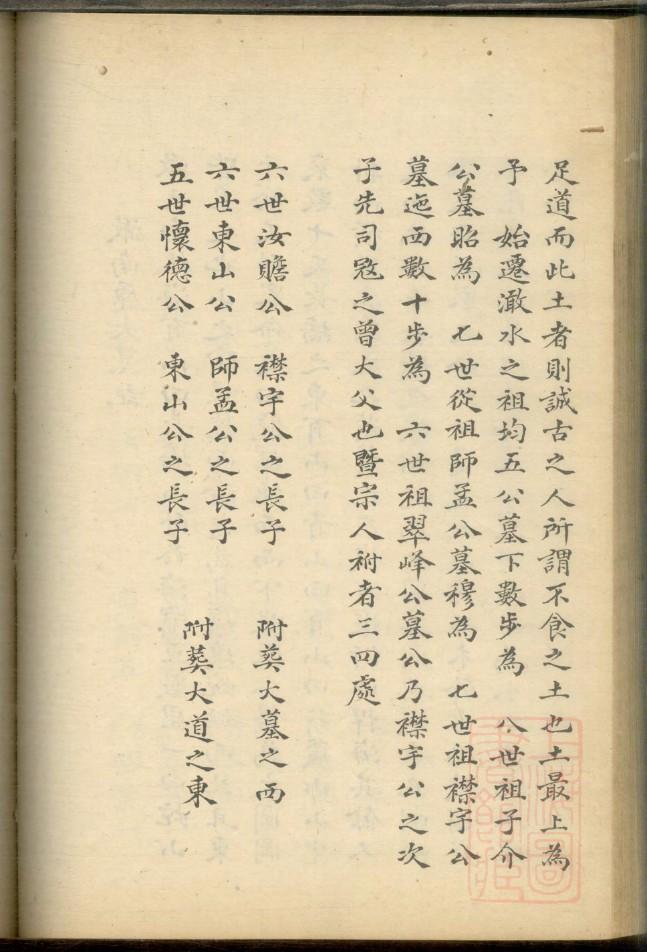 足道而此土者則誠古之人所謂不食之土也土最上為
予　始遷澉水之祖均五公墓下數步為　八世祖子介
公墓昭為　七世從祖師孟公墓穆為　七世祖襟宇公
墓迤西數十步為　六世祖翠峰公墓公乃襟宇公之次
子先司寇之曾大父也暨宗人祔者三四處
六世汝贍公　襟宇公之長子　附葬大墓之西
六世東山公　師孟公之長子
五世懷德公　東山公之長子　附葬大道之東